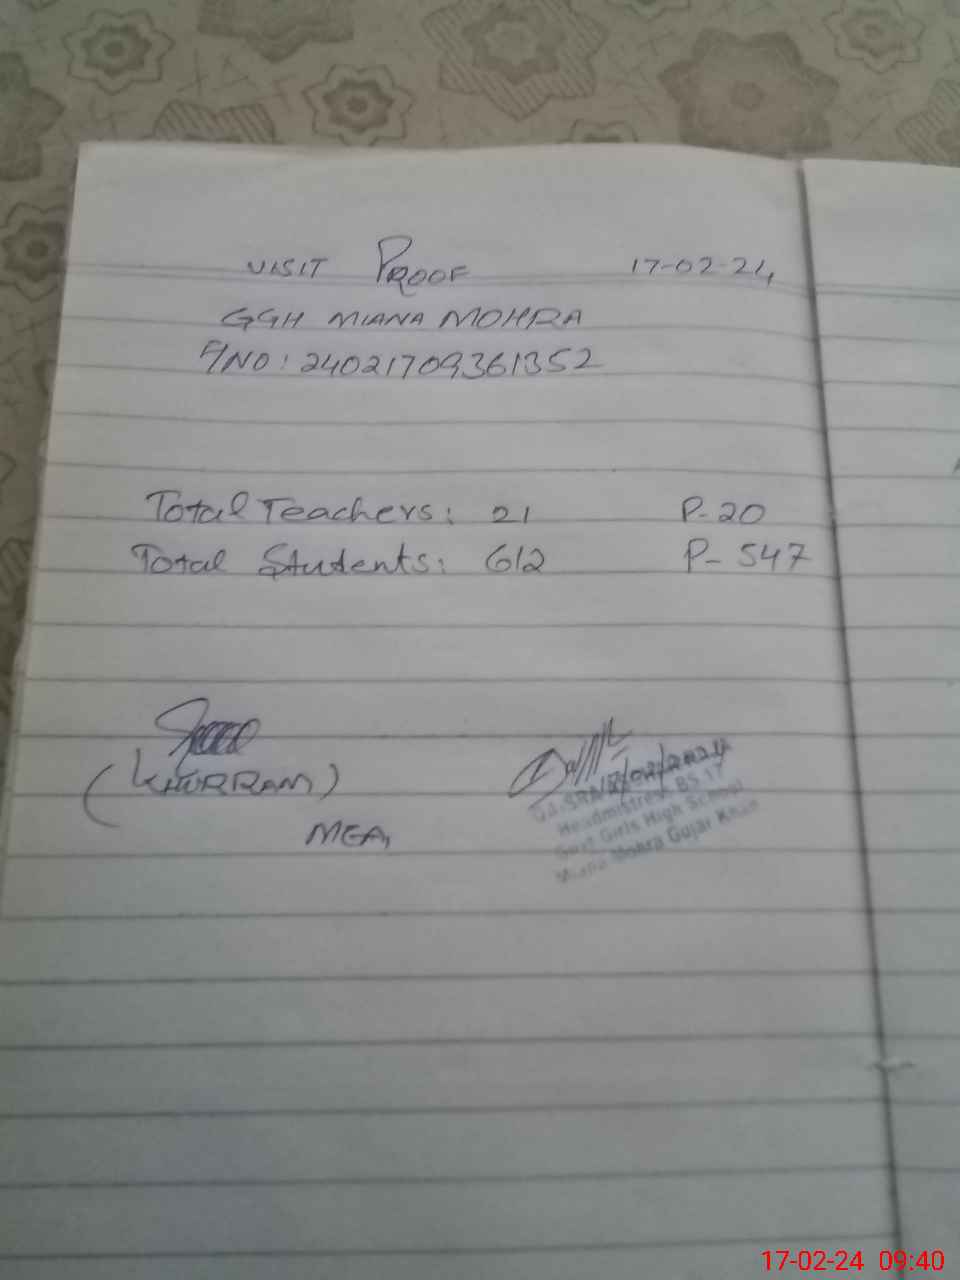 VISIT PROOF 17-02-24
GGH MIANA MOHRA
F/NO: 24021709361352
Total Teachers: 21 P-20
Total Students: 612 P-547
(KHURRAM)
MEA,
/02/2024
Headmistress BS-17
Govt Girls High School
Miana Mohra Gujar Khan
17-02-24 09:40